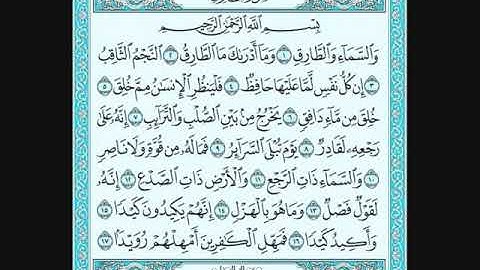 بِسْمِ اللَّهِ الرَّحْمَٰنِ الرَّحِيمِ
وَالسَّمَاءِ وَالطَّارِقِ ١ وَمَا أَدْرَاكَ مَا الطَّارِقُ ٢ النَّجْمُ الثَّاقِبُ
٣ إِن كُلُّ نَفْسٍ لَّمَّا عَلَيْهَا حَافِظٌ ٤ فَلْيَنظُرِ الْإِنسَٰنُ مِمَّ خُلِقَ ٥
خُلِقَ مِن مَّاءٍ دَافِقٍ ٦ يَخْرُجُ مِن بَيْنِ الصُّلْبِ وَالتَّرَائِبِ ٧ إِنَّهُ عَلَىٰ
رَجْعِهِ لَقَادِرٌ ٨ يَوْمَ تُبْلَى السَّرَائِرُ ٩ فَمَا لَهُ مِن قُوَّةٍ وَلَا نَاصِرٍ
١٠ وَالسَّمَاءِ ذَاتِ الرَّجْعِ ١١ وَالْأَرْضِ ذَاتِ الصَّدْعِ ١٢ إِنَّهُ
لَقَوْلٌ فَصْلٌ ١٣ وَمَا هُوَ بِالْهَزْلِ ١٤ إِنَّهُمْ يَكِيدُونَ كَيْدًا ١٥
وَأَكِيدُ كَيْدًا ١٦ فَمَهِّلِ الْكَٰفِرِينَ أَمْهِلْهُمْ رُوَيْدًا ١٧